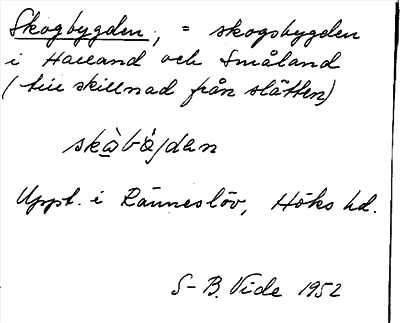 Skogbygden, = skogsbygden
i Halland och Småland
(till skillnad från slätten)
skàbájdan
Uppt. i Ränneslöv, Höks hd.
S-B. Vide 1952